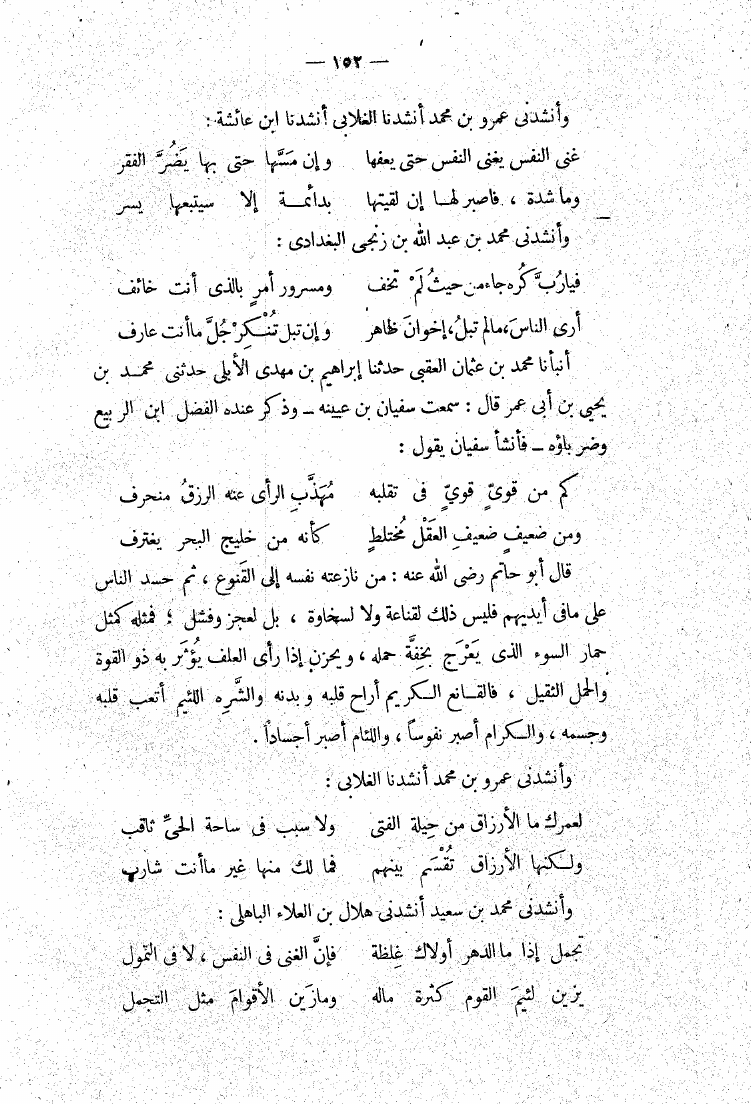 — ١٥٢ —
وأنشدنى عمرو بن محمد أنشدنا الغلابى أنشدنا ابن عائشة :
غنى النفس يغنى النفس حتى يعفها وإن مَسَّها حتى بها يَضُرَّ الفقر
وما شدة ، فاصبر لهـا إن لقيتها بدائمـة إلا سيتبعها يسر
وأنشدنى محمد بن عبد الله بن زنجى البغدادى :
فيارُبَّ كُره جاء من حيثُ لَمْ تخف ومسرور أمرٍ بالذى أنت خائف
أرى الناسَ، مالم تبلُ، إخوانَ ظاهر وإن تبل تُنْكِرْ جُلَّ ما أنت عارف
أنبأنا محمد بن عثمان العقبى حدثنا إبراهيم بن مهدى الأبلى حدثنى محمـد بن
يحيى بن أبى عمر قال : سمعت سفيان بن عيينه ــ وذكر عنده الفضل ابن الربيع
وضرباؤه ــ فأنشأ سفيان يقول :
كم من قوىٍّ قوىٍّ فى تقلبه مُهَذَّبِ الرأى عنه الرزقُ منحرف
ومن ضعيفٍ ضعيفِ العَقْلِ مُختلطٍ كأنه من خليج البحر يغترف
قال أبو حاتم رضى الله عنه : من نازعته نفسه إلى القَنوع ، ثم حسد الناس
على مافى أيديهم فليس ذلك لقناعة ولا لسخاوة ، بل لعجز وفشل ؛ فمثله كمثل
حمار السوء الذى يَعْرَج بخِفَّة حمله ، ويحزن إذا رأى العلف يُؤثَر به ذو القوة
والحمل الثقيل ، فالقـانع الـكريم أراح قلبه وبدنه والشَّرِه اللئيم أتعب قلبه
وجسمه ، والـكرام أصبر نفوساً ، واللئام أصبر أجساداً .
وأنشدنى عمرو بن محمد أنشدنا الغلابى :
لعمرك ما الأرزاق من حِيلة الفتى ولا سبب فى ساحة الحىِّ ثاقب
ولـكنها الأرزاق تُقْسَم بينهم فما لك منها غير ما أنت شارب
وأنشدنى محمد بن سعيد أنشدنى هلال بن العلاء الباهلى :
تجمل إذا ما الدهر أولاك غِلظة فإنَّ الغنى فى النفس ، لا فى التمول
يزين لئيمَ القوم كثرة ماله وما زَين الأقوامَ مثل التجمل